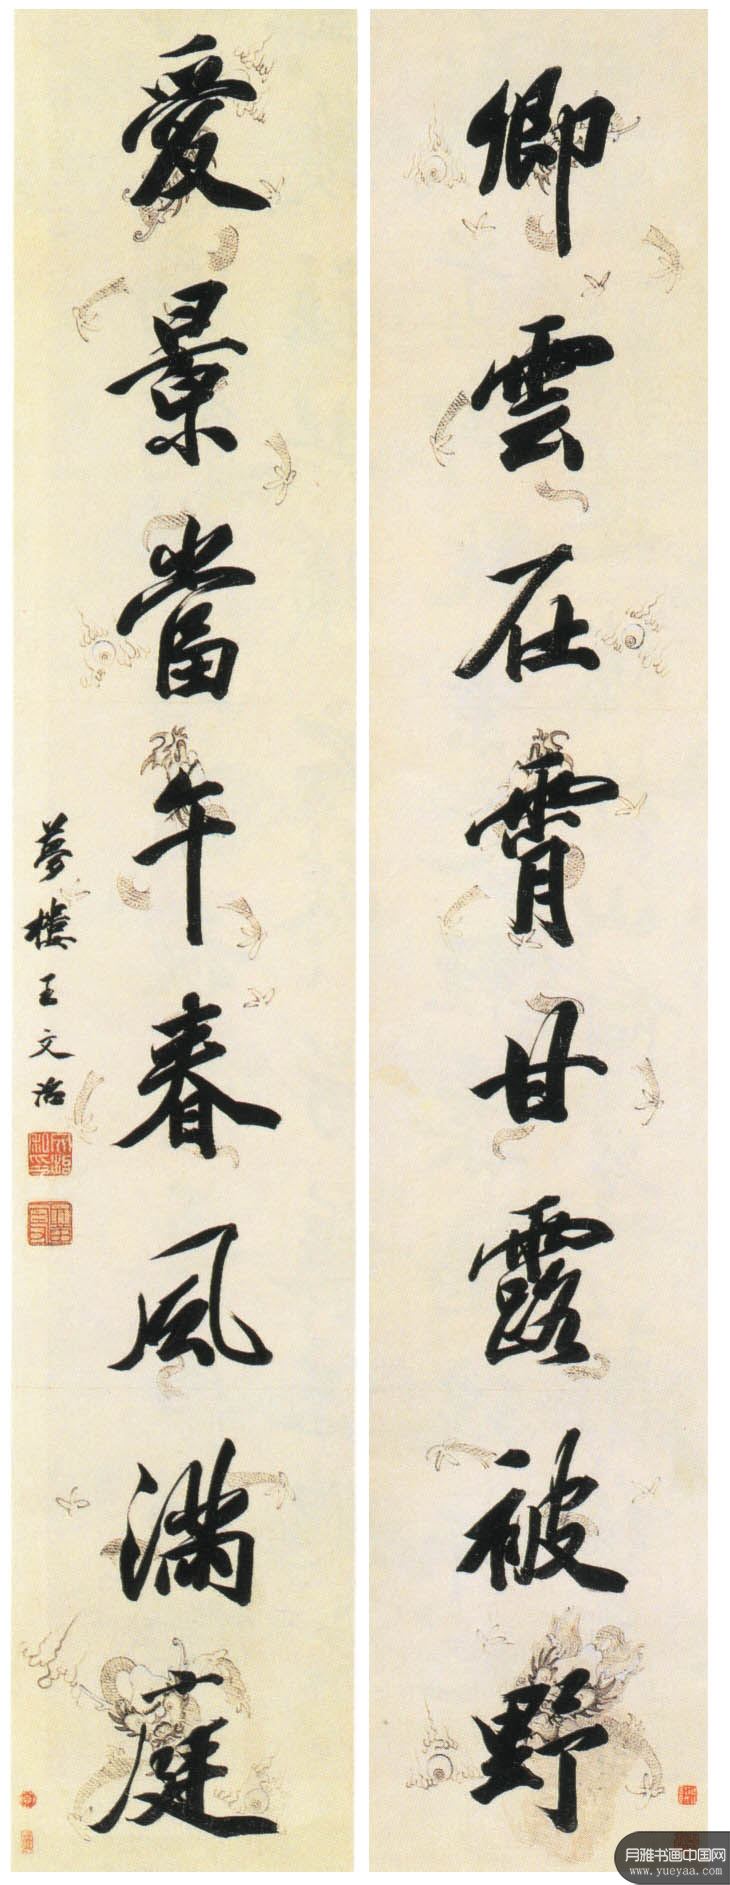 卿雲在霄甘露被野
愛景當午春風滿庭
夢樓王文治
月雅书画中国网
www.yueyaa.com